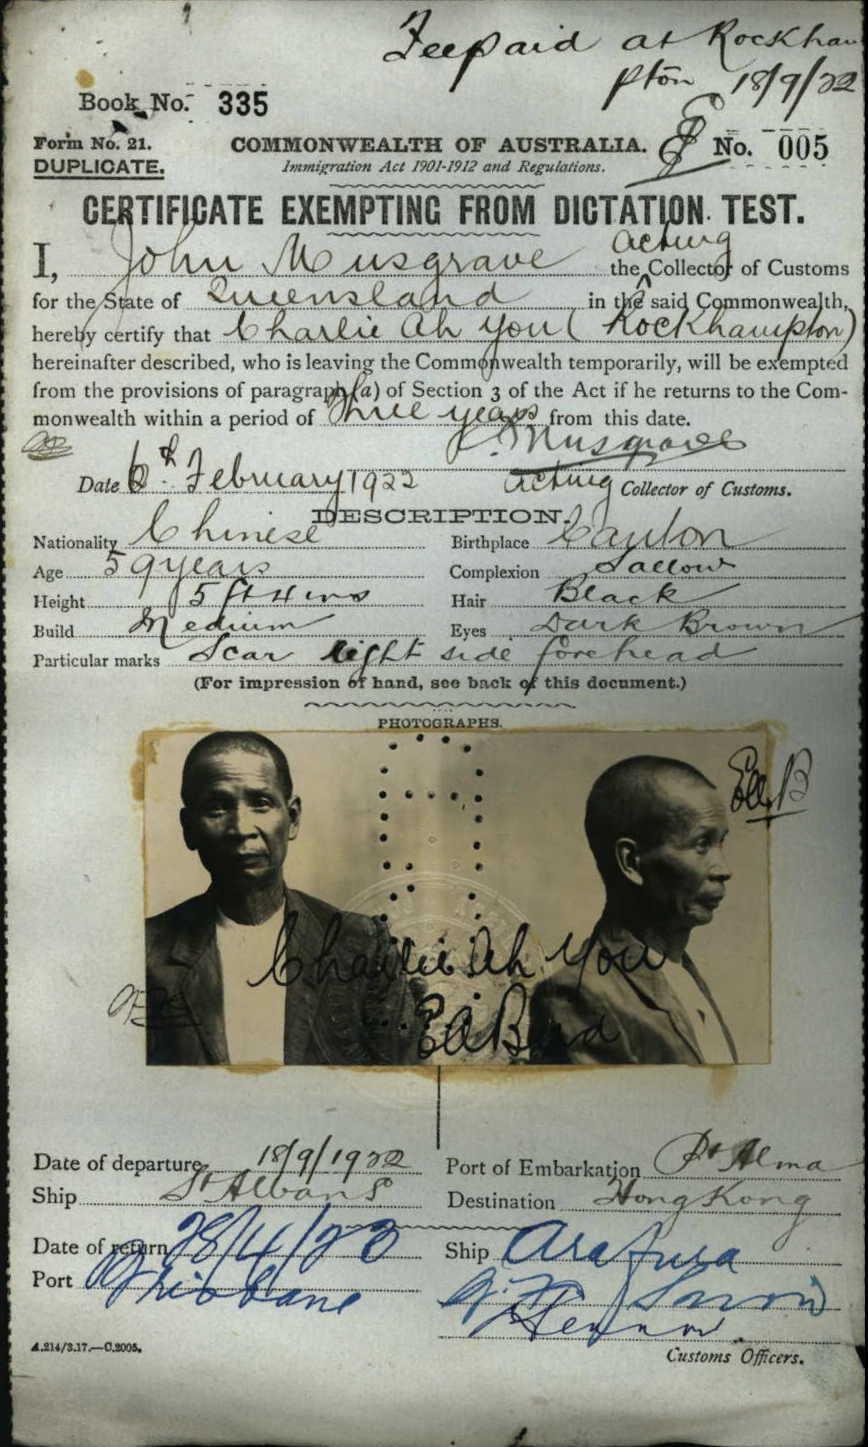 Fee paid at Rockham
pton 18/9/22
Book No. 335
Form No. 21.
COMMONWEALTH OF AUSTRALIA.
No. 005
DUPLICATE.
Immigration Act 1901-1912 and Regulations.
CERTIFICATE EXEMPTING FROM DICTATION TEST.
acting
I, John Musgrave the Collector of Customs
for the State of Queensland in the said Commonwealth,
hereby certify that Charlie Ah You (Rockhampton)
hereinafter described, who is leaving the Commonwealth temporarily, will be exempted
from the provisions of paragraph (a) of Section 3 of the Act if he returns to the Com-
monwealth within a period of three years from this date.
J. Musgrave
Date 6th February 1922 Acting Collector of Customs.
DESCRIPTION.
Nationality Chinese Birthplace Canton
Age 59 years Complexion Sallow
Height 5 ft 4 ins Hair Black
Build Medium Eyes Dark Brown
Particular marks Scar right side forehead
(For impression of hand, see back of this document.)
PHOTOGRAPHS.
Charlie Ah You
Date of departure 18/9/1922 Port of Embarkation Pt Alma
Ship St Albans Destination Hong Kong
Date of return 28/4/23 Ship Arafura
Port Brisbane
A.214/3.17.—C.2005.
Customs Officers.